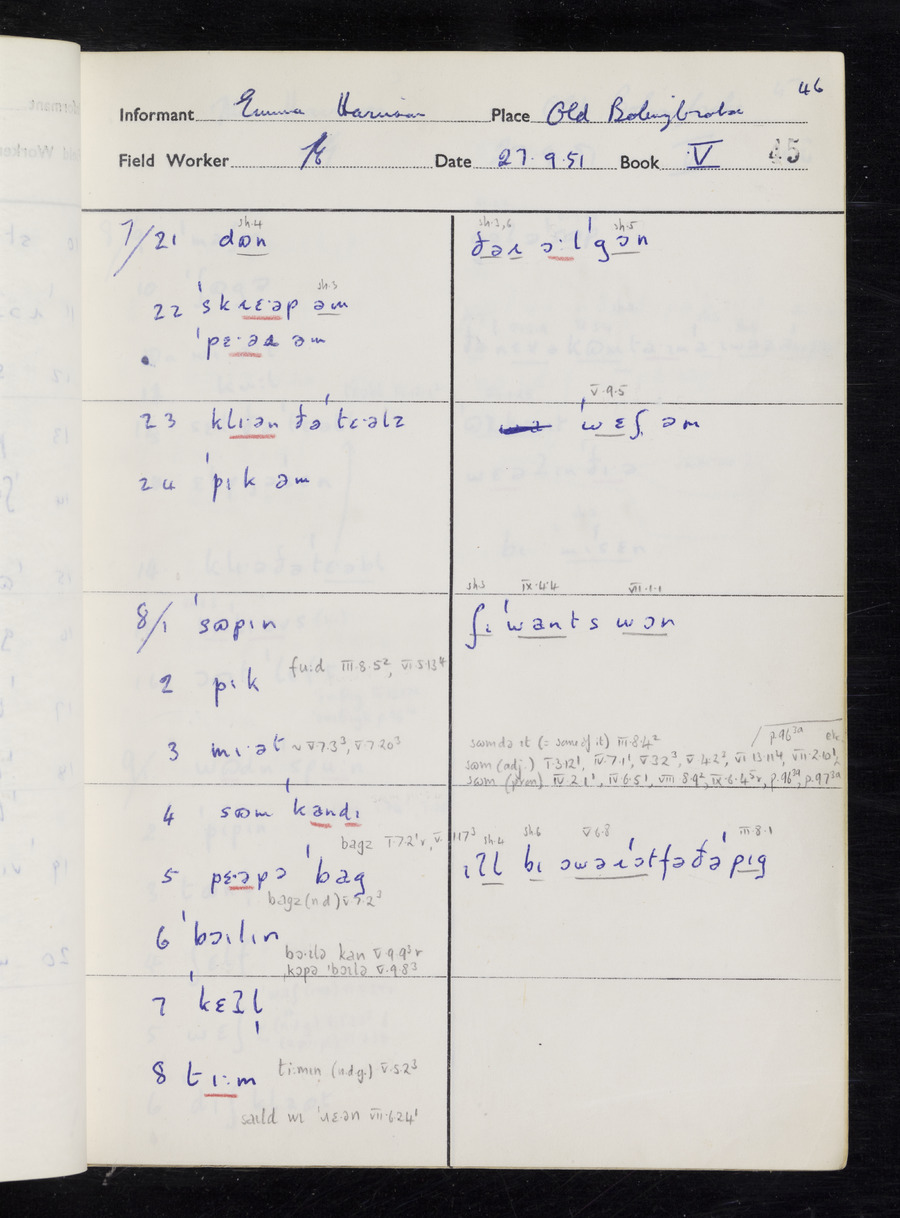 46
Informant Emma Harrison Place Old Bolingbroke
Field Worker Date 27.9.51 Book V 45
sh.4
7/21 dɷn
sh.3
22 ˈskɹɛ·əp əm
ˈpɛ·əɹ əm
23 klɪ·ən ðə ˈtɛ·əlz
24 ˈpɪk əm
8/1 ˈsɷpɪn
2 pɪk fu:d III.8.5², VI.5.13⁴
3 mɪ·ət ~ V.7.3³, V.7.20³
4 sɷm ˈkandɪ
bagz I.7.2¹r, V.
5 pɛ·əpə ˈbag
bagz (n.d) V.7.2³
6 ˈbɔɪlɪn
bɔ·ɪlə kan V.9.9³r
ˌkɔpə ˈbɔɪlə V.9.8³
7 ˈkɛʔl̩
8 tɪ:m ti:min (n.d.g.) V.5.2³
saɪld wɪ ˈɹɛ·ən VII.6.24¹
sh.3,6 sh.5
ðəɹ ɔ:l ˈgɔn
V.9.5
ˈwɛʃ əm
sh3 IX.4.4 VII.1.1
ʃɪ ˈwants wɔn
p.96³ᵃ etc
sɷmdə ɪt (= some of it) III.8.4²
sɷm (adj.) I.3.12¹, IV.7.1¹, V.3.2³, V.4.2³, VI.13.11⁴, VII.2.10¹,
sɷm (pron) IV.2.1¹, IV.6.5¹, VIII.8.9², IX.6.4⁵r, p.96³ᵃ, p.97³ᵃ
117³ sh.4 sh.6 V.6.8 III.8.1
ɪʔl bɪ ɔwəɹˈɔt fə ðə ˈpɪg